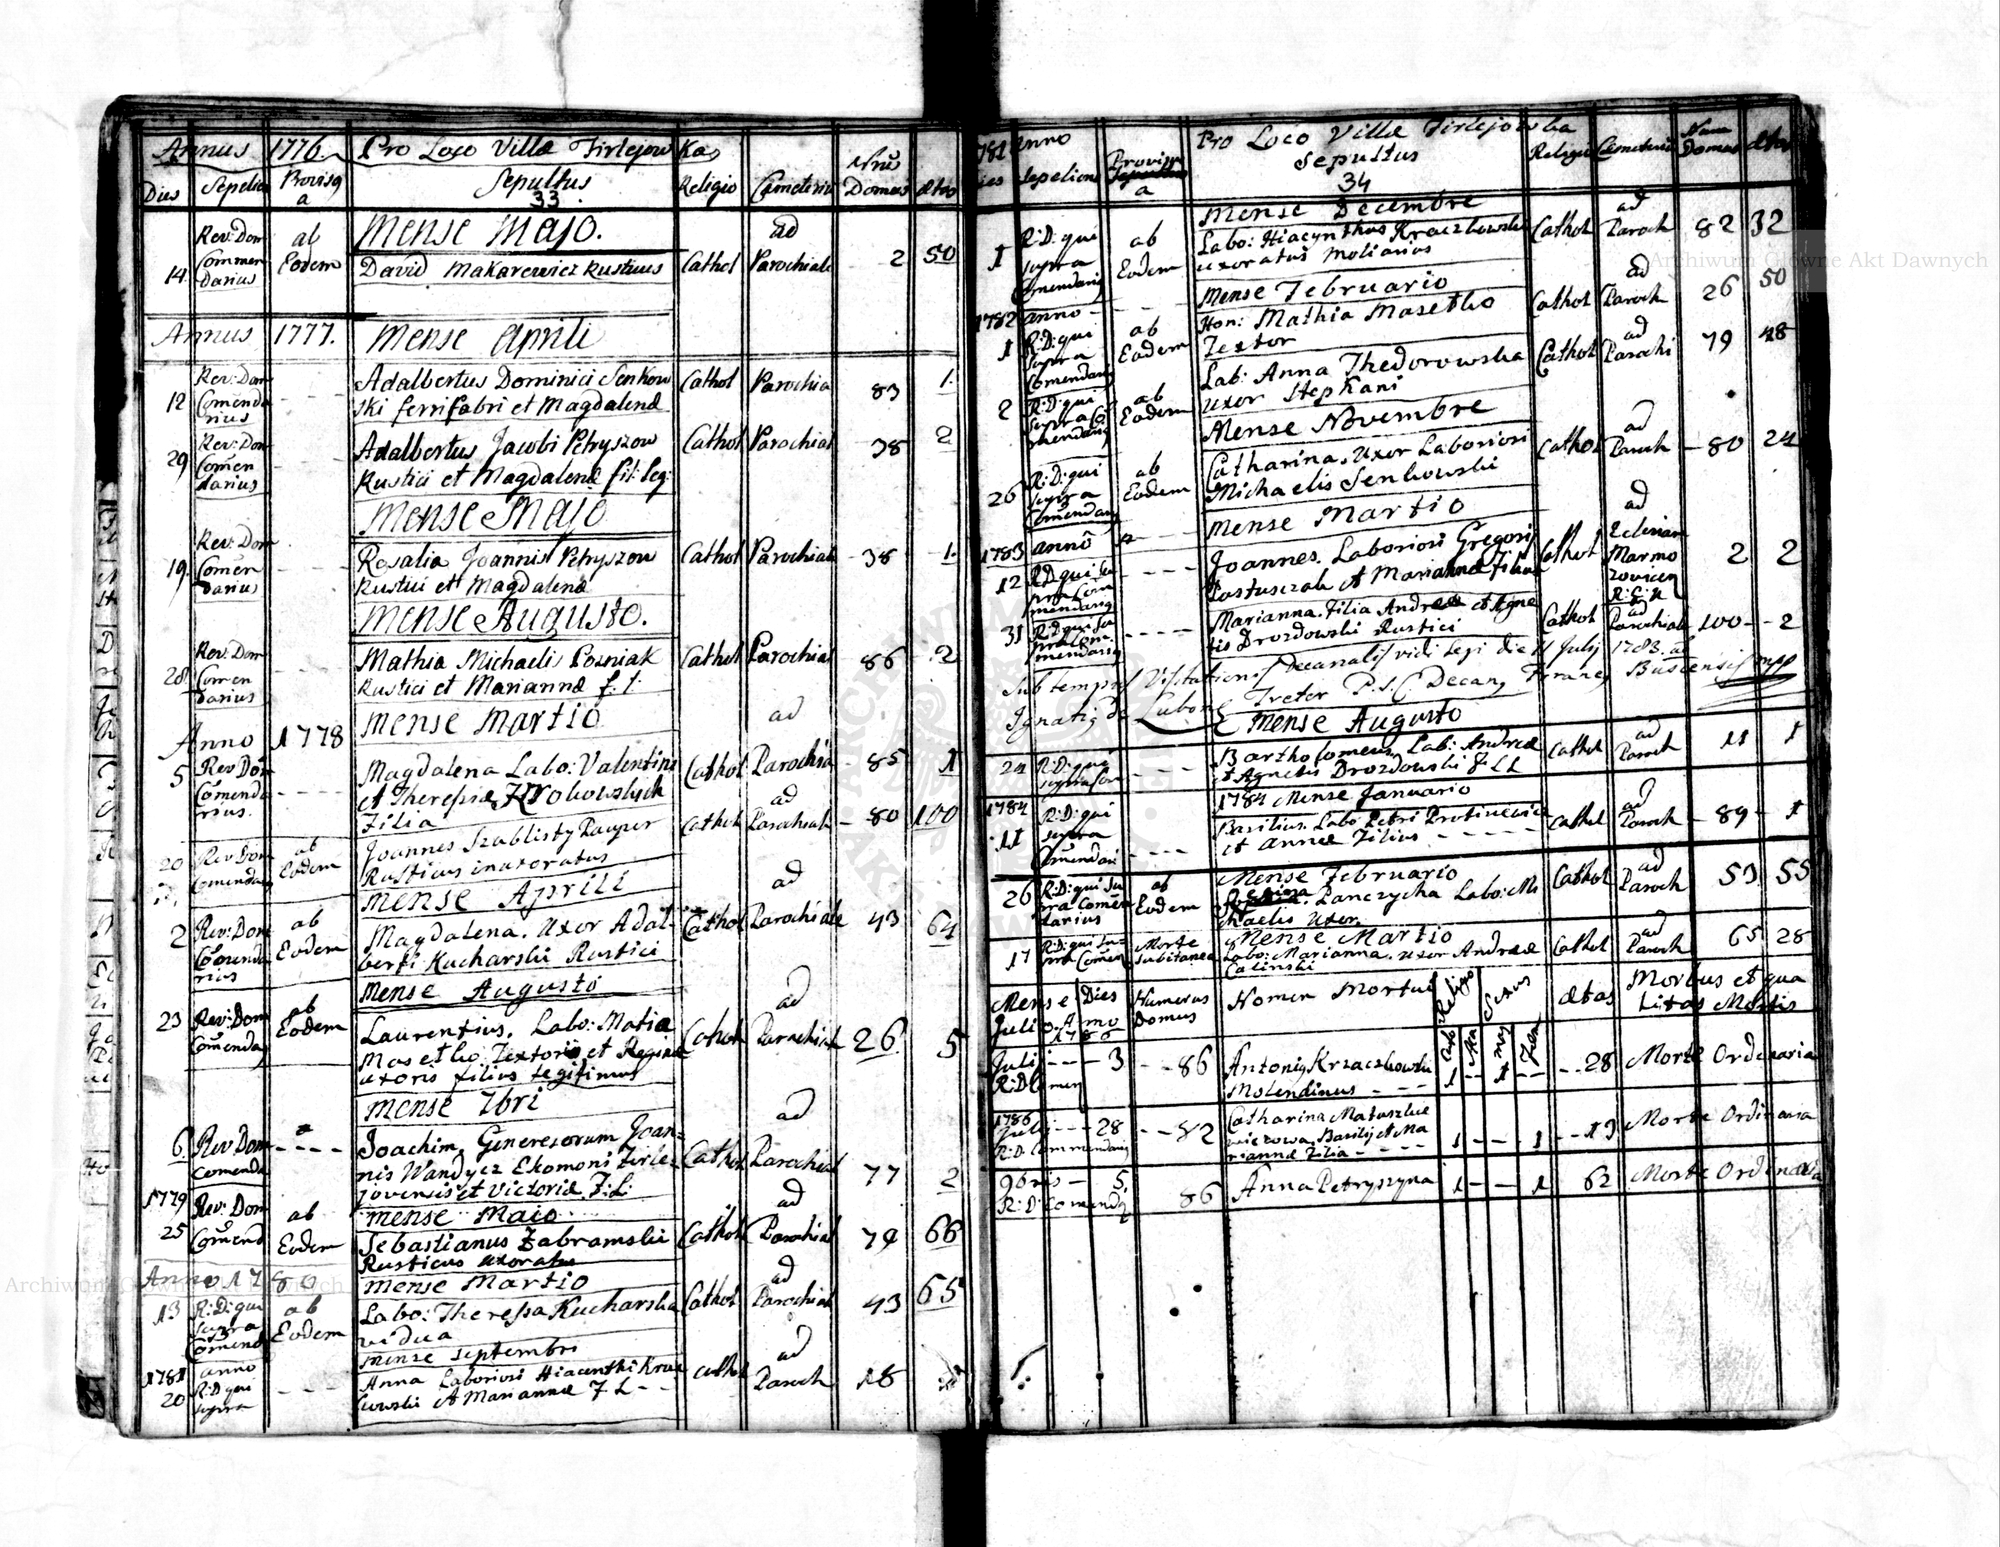 Annus 1776 Pro Loco Villæ Firlejow Kas
Dies Sepeliens Provisq a Sepultus 33 Religio Cæmeteriu Nrus Domus ætas
Mense Majo.
14 Rev: Dom Commendarius ab Eodem David Makarewicz Rusticus Cathol ad Parochiale 2 50
Annus 1777. Mense Aprili
12 Rev: Dom Comendarius Adalbertus Dominici Senkow Cathol Parochia 83 1.
ski ferrifabri et Magdalenæ
29 Rev: Dom Comendarius Adalbertus Jacobi Petryszow Cathol Parochial 38 2
Rustici et Magdalenæ fil: leg:
Mense Majo
19. Rev: Dom Comendarius Rosalia Joannis Petryszow Cathol Parochiale 38 1.
Rustici et Magdalenæ
Mense Augusto.
28 Rev: Dom Comendarius Mathia Michaelis Pozniak Cathol Parochial 86 2
Rustici et Mariannæ f. l.
Anno 1778 Mense Martio
5 Rev Dom Comendarius. Magdalena Labo: Valentini Cathol ad Parochia 85 1
et Theresiæ Krokowskich
Filia
20 Rev Dom Comendarq ab Eodem Joannes Szablisty Pauper Cathol ad Parochiale 80 100
Rusticus inuxoratus
Mense Aprili
2 Rev: Dom Comendarius ab Eodem Magdalena. Uxor Adal- Cathol ad Parochiale 43 64
berti Kucharski Rustici
Mense Augusto
23 Rev: Dom Comenda ab Eodem Laurentius. Labo: Matiæ Cathol ad Parochial 26 5
Masetko Textoris et Reginæ
uxoris filius legitimus
Mense 7bri
6. Rev Dom Comenda Joachim Generosorum Joan= Cathol ad Parochial 77 2
nis Wandycz Ekomoni Firle=
jovensis et Victoriæ F: L:
1779 Mense Maio
25 Rev: Dom Comend ab Eodem Sebastianus Zabramski Cathol ad Parochial 79 66
Rusticus uxoratus
Anno 1780 Mense Martio
13 R: D: qui supra Comend ab Eodem Labo: Theressa Kucharska Cathol ad Parochial 43 65
vidua
1781 anno Mense Septembri
20 R: D qui supra Anna Laboriosi Hiacenthi Krac Cathol ad Paroch 18
kowski et Mariannæ F L
1781 Anno Pro Loco Villæ Firlejowka
Dies Sepeliens Provisq a Sepultus 34 Religio Cæmeteriu Num Domus ætas
Mense Decembre
1 R: D: qui supra Comendariq ab Eodem Labo: Hiacynthus Kraczkowski Cathol ad Paroch 82 32
uxoratus Molianius
1782 anno Mense Februario
1 R: D: qui supra Comendariq ab Eodem Hon: Mathia Masetko Cathol ad Paroch 26 50
Textor
2 R: D: qui supra Comendariq ab Eodem Lab: Anna Thedorowska Cathol ad Parochi 79 48
uxor Stephani
Mense Novembre
26 R: D: qui supra Comendariq ab Eodem Catharina. Uxor Laboriosi Cathol ad Paroch 80 24
Michaelis Senkowski
1783 anno Mense Martio
12 R D: qui supra Comendariq Joannes. Laboriosi Gregori Cathol ad Marmo 2 2
Pastuszak et Mariannæ Filius
31 R: D: qui supra Comendariq Marianna. Filia Andreæ et Agne Cathol ad Parochiale 100 2
tis Drozdowski Rustici
Sub tempus Visitationis Decanalis vidi Legi die 11 Julij 1783. a
Ignatiq de Lubone Treter P. S. C Decanq Buscensis mpp
Mense Augusto
24 R: D: qui supra Bartholomeus Lab: Andreæ Cathol ad Paroch 11 1
et Agnetis Drozdowski F L L
1784 1784 Mense Januario
11 R: D: qui supra Comendari Basilius. Labo Petri Protinewicz Cathol ad Paroch 89 1
et Annæ Filius
Mense Februario
26 R: D: qui supra Comendarius ab Eodem Regina. Panczycha Labo: Mi Cathol ad Paroch 53 55
chaelis Uxor.
Mense Martio
17 R: D: qui supra Comen Morte subitanea Labo: Marianna. uxor Andreæ Cathol ad Paroch 65 28
Calinski
Mense Julio Dies Anno 1786 Numerus Domus Nomen Mortui Religio Sexus ætas Morbus et qua
litas Mortis
Julij R: D Comen 3 86 Antoniq Krzaczkowski 1 1 28 Morte Ordinaria
Molendinus
1786 July 28 82 Catharina Matuszkie 1 1 13 Morte Ordinaria
R: D. Commendariq wiczowa. Basilij et Ma
riannæ Filia
9bris 5. 86 Anna Petryszyna 1 1 62 Morte Ordinaria
R: D: Comendq
Archiwum Główne Akt Dawnych
Archiwum Główne Akt Dawnych